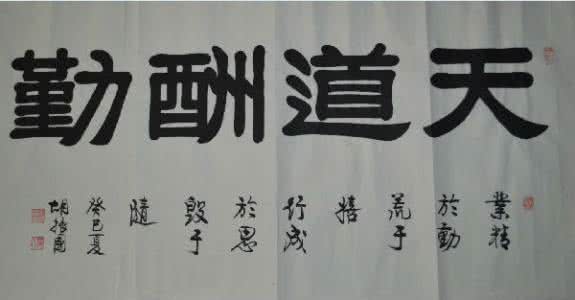 天道酬勤
業精
於勤
荒于
嬉
行成
於思
毀于
隨
癸巳夏
胡